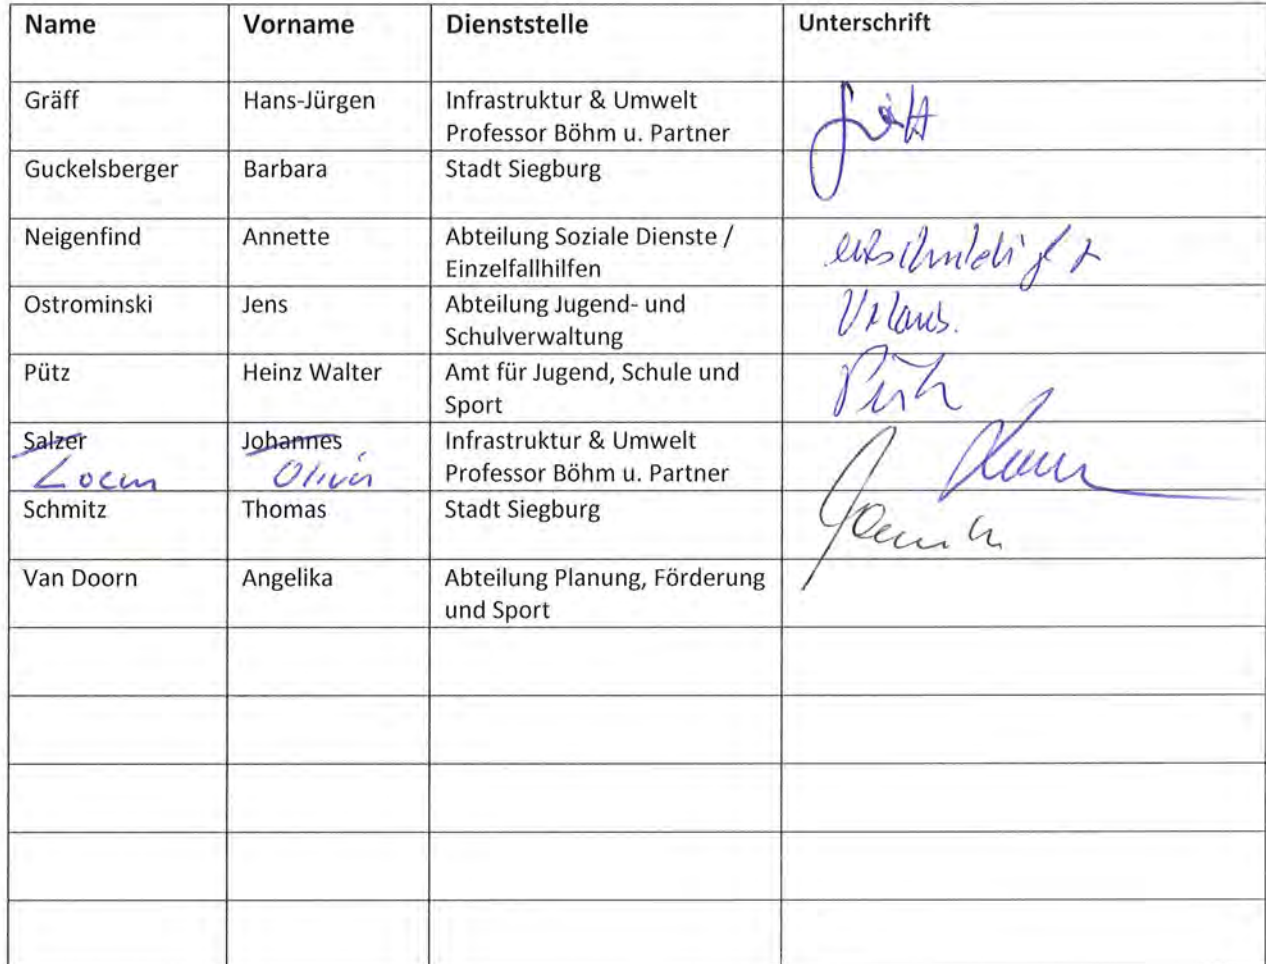 Name Vorname Dienststelle Unterschrift
Gräff Hans-Jürgen Infrastruktur & Umwelt
Professor Böhm u. Partner
Guckelsberger Barbara Stadt Siegburg
Neigenfind Annette Abteilung Soziale Dienste /
Einzelfallhilfen
entschuldigt
Ostrominski Jens Abteilung Jugend- und
Schulverwaltung
Urlaub.
Pütz Heinz Walter Amt für Jugend, Schule und
Sport
Pütz
Salzer Johannes Infrastruktur & Umwelt
Oliver Professor Böhm u. Partner
Schmitz Thomas Stadt Siegburg
Van Doorn Angelika Abteilung Planung, Förderung
und Sport